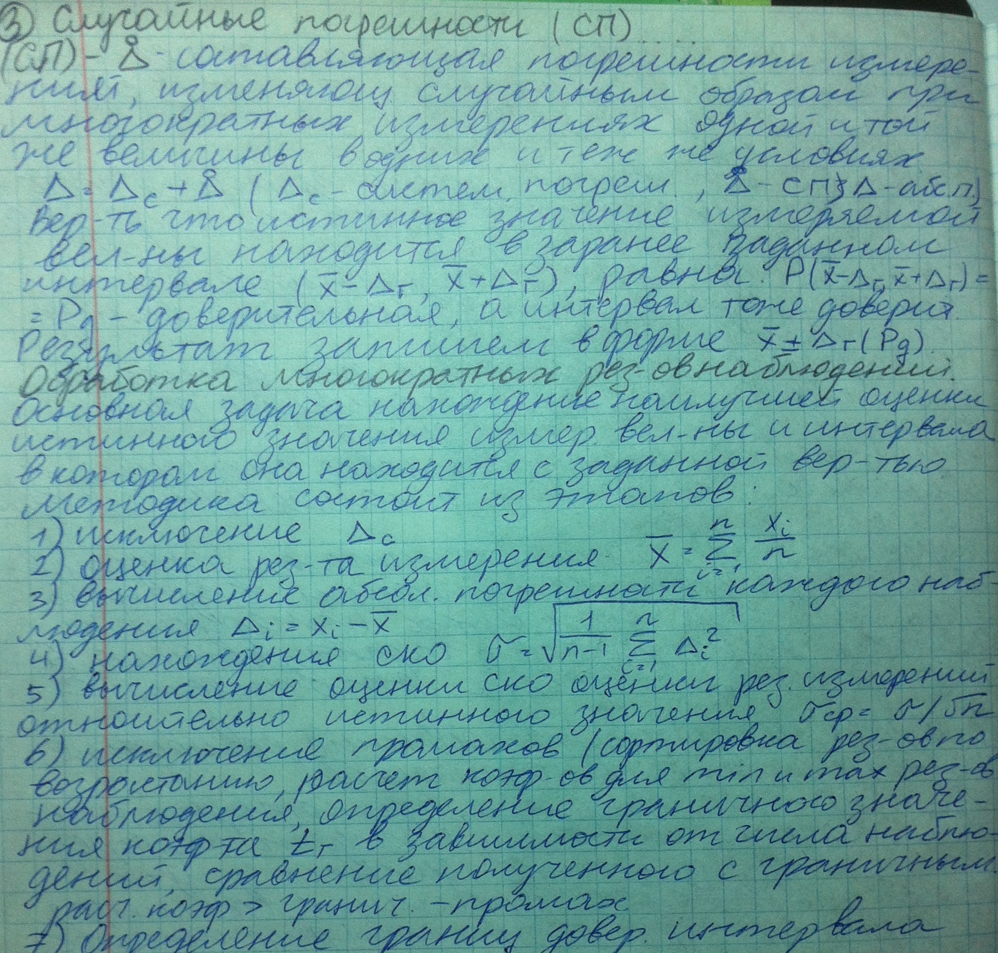 ③ Случайные погрешности (СП)
(СП) - Δ̊ - составляющая погрешности измере-
ний, изменяющ случайным образом при
многократных измерениях одной и той
же величины в одних и тех же условиях
Δ = Δс + Δ̊ ( Δс - систем. погреш., Δ̊ - СП, Δ - абс П)
Вер-ть что истинное значение измеряемой
вел-ны находится в заранее заданном
интервале (x̅ - Δг, x̅ + Δг), равна P(x̅-Δг, x̅+Δг) =
= Pg - доверительная, а интервал тоже доверит.
Результат запишем в форме x̅ ± Δг (Pg)
Обработка многократных рез-ов наблюдений.
Основная задача нахождение наилучшей оценки
истинного значения измер. вел-ны и интервала
в котором она находится с заданной вер-тью
Методика состоит из этапов:
1) исключение Δс
2) оценка рез-та измерения x̅ = Σ (i=1, n) xi/n
3) вычисление абсол. погрешности каждого наб-
людения Δi = xi - x̅
4) нахождения ско σ = √(1/(n-1) Σ (i=1, n) Δi²)
5) вычисление оценки ско оценки рез. измерений
относительно истинного значения σср = σ/√n
6) исключение промахов (сортировка рез-ов по
возростанию, расчет коэф-ов для min и max рез-ов
наблюдения, определение граничного значе-
ния коэф та tг в зависимости от числа наблю-
дений, сравнение полученного с граничным
расч. коэф > гранич. - промах
7) Определение границ довер. интервала